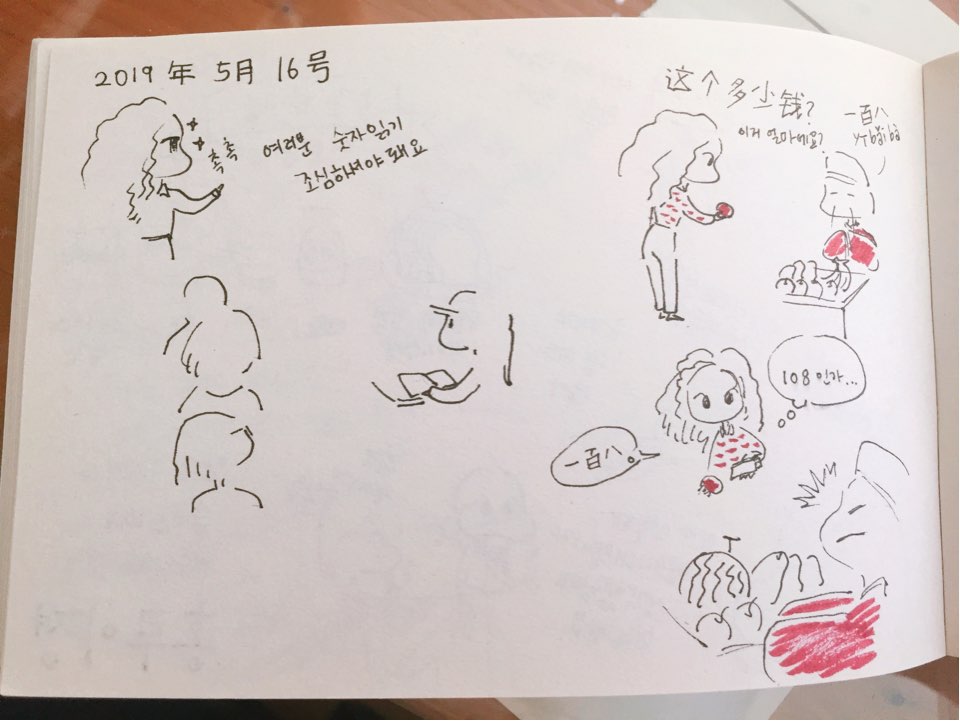 2019 年 5月 16号
촉촉
여러분 숫자읽기
조심하셔야 돼요
这个多少钱?
이거 얼마예요?
一百八
yī bǎi bā
108 인가...
一百八